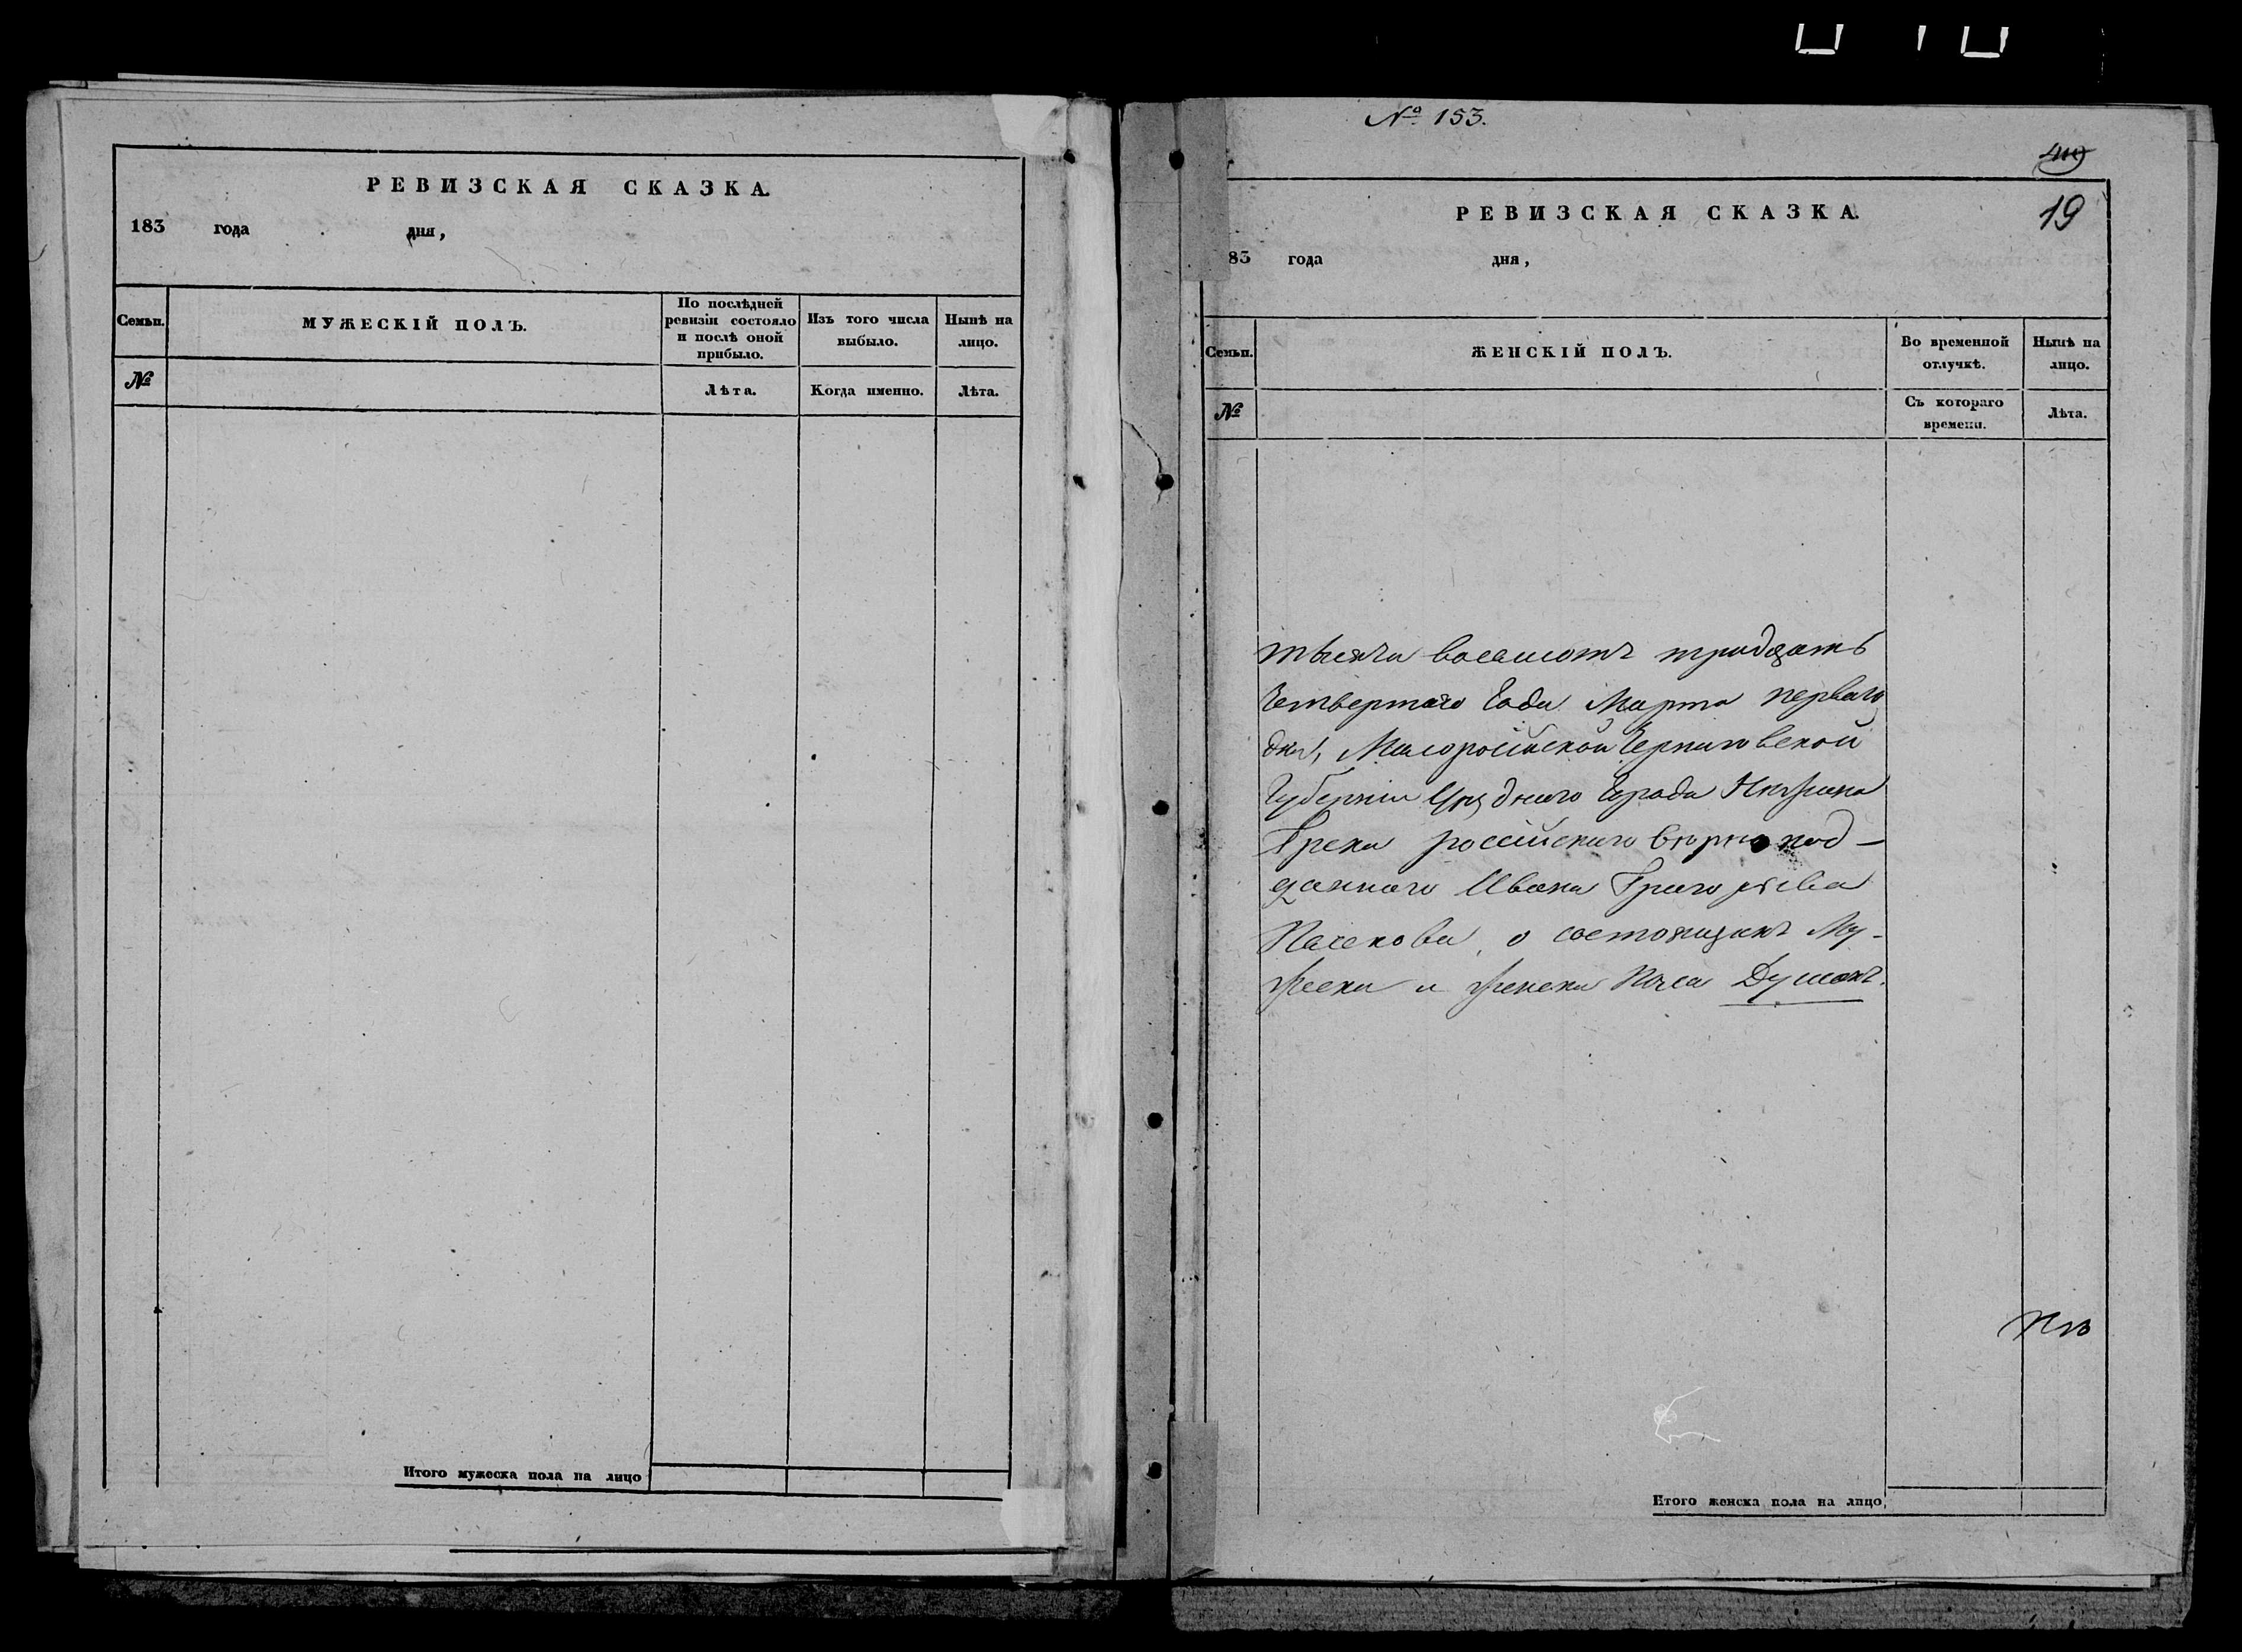 РЕВИЗСКАЯ СКАЗКА.
183 года дня,
Семьи.
МУЖЕСКІЙ ПОЛЪ.
По послѣдней ревизіи состояло и послѣ оной прибыло.
Изъ того числа выбыло.
Нынѣ на лицо.
№
Лѣта.
Когда именно.
Лѣта.
Итого мужеска пола на лицо
№ 153.
19
РЕВИЗСКАЯ СКАЗКА.
83 года дня,
Семьи.
ЖЕНСКІЙ ПОЛЪ.
Во временной отлучкѣ.
Нынѣ на лицо.
№
Съ котораго времени.
Лѣта.
тысяча восемсотъ тридцать
Четвертаго Года Марта перваго
дня, Малоросійской Черниговской
Губерніи Уѣзднаго Города Нѣжина
Грека россійскаго вѣрно под-
даннаго Ивана Григорьева
о состоящихъ Му-
жеска и женска Пола Душахъ.
Итого женска пола на лицо